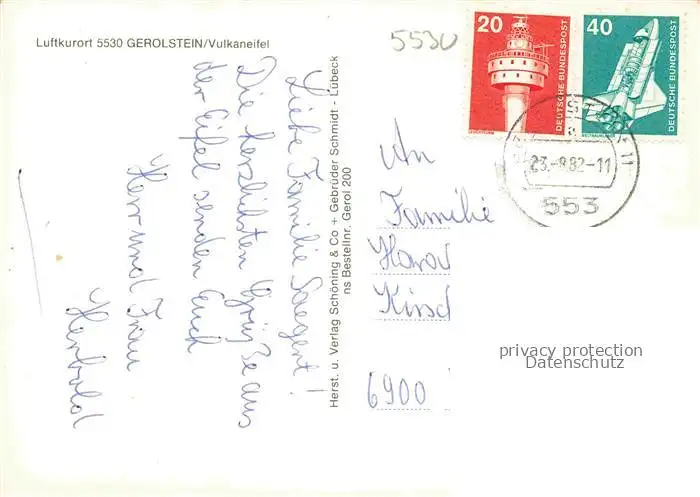 Luftkurort 5530 GEROLSTEIN/Vulkaneifel
5530
20
DEUTSCHE BUNDESPOST
40
DEUTSCHE BUNDESPOST
23.-8.82-11
553
Liebe Familie Saegert!
Die herzlichsten Grüße aus
der Eifel senden Euch
Herr und Frau
Herbold
Herst. u. Verlag Schöning & Co + Gebrüder Schmidt - Lübeck
ns Bestellnr. Gerol 200
An
Familie
6900
privacy protection
Datenschutz